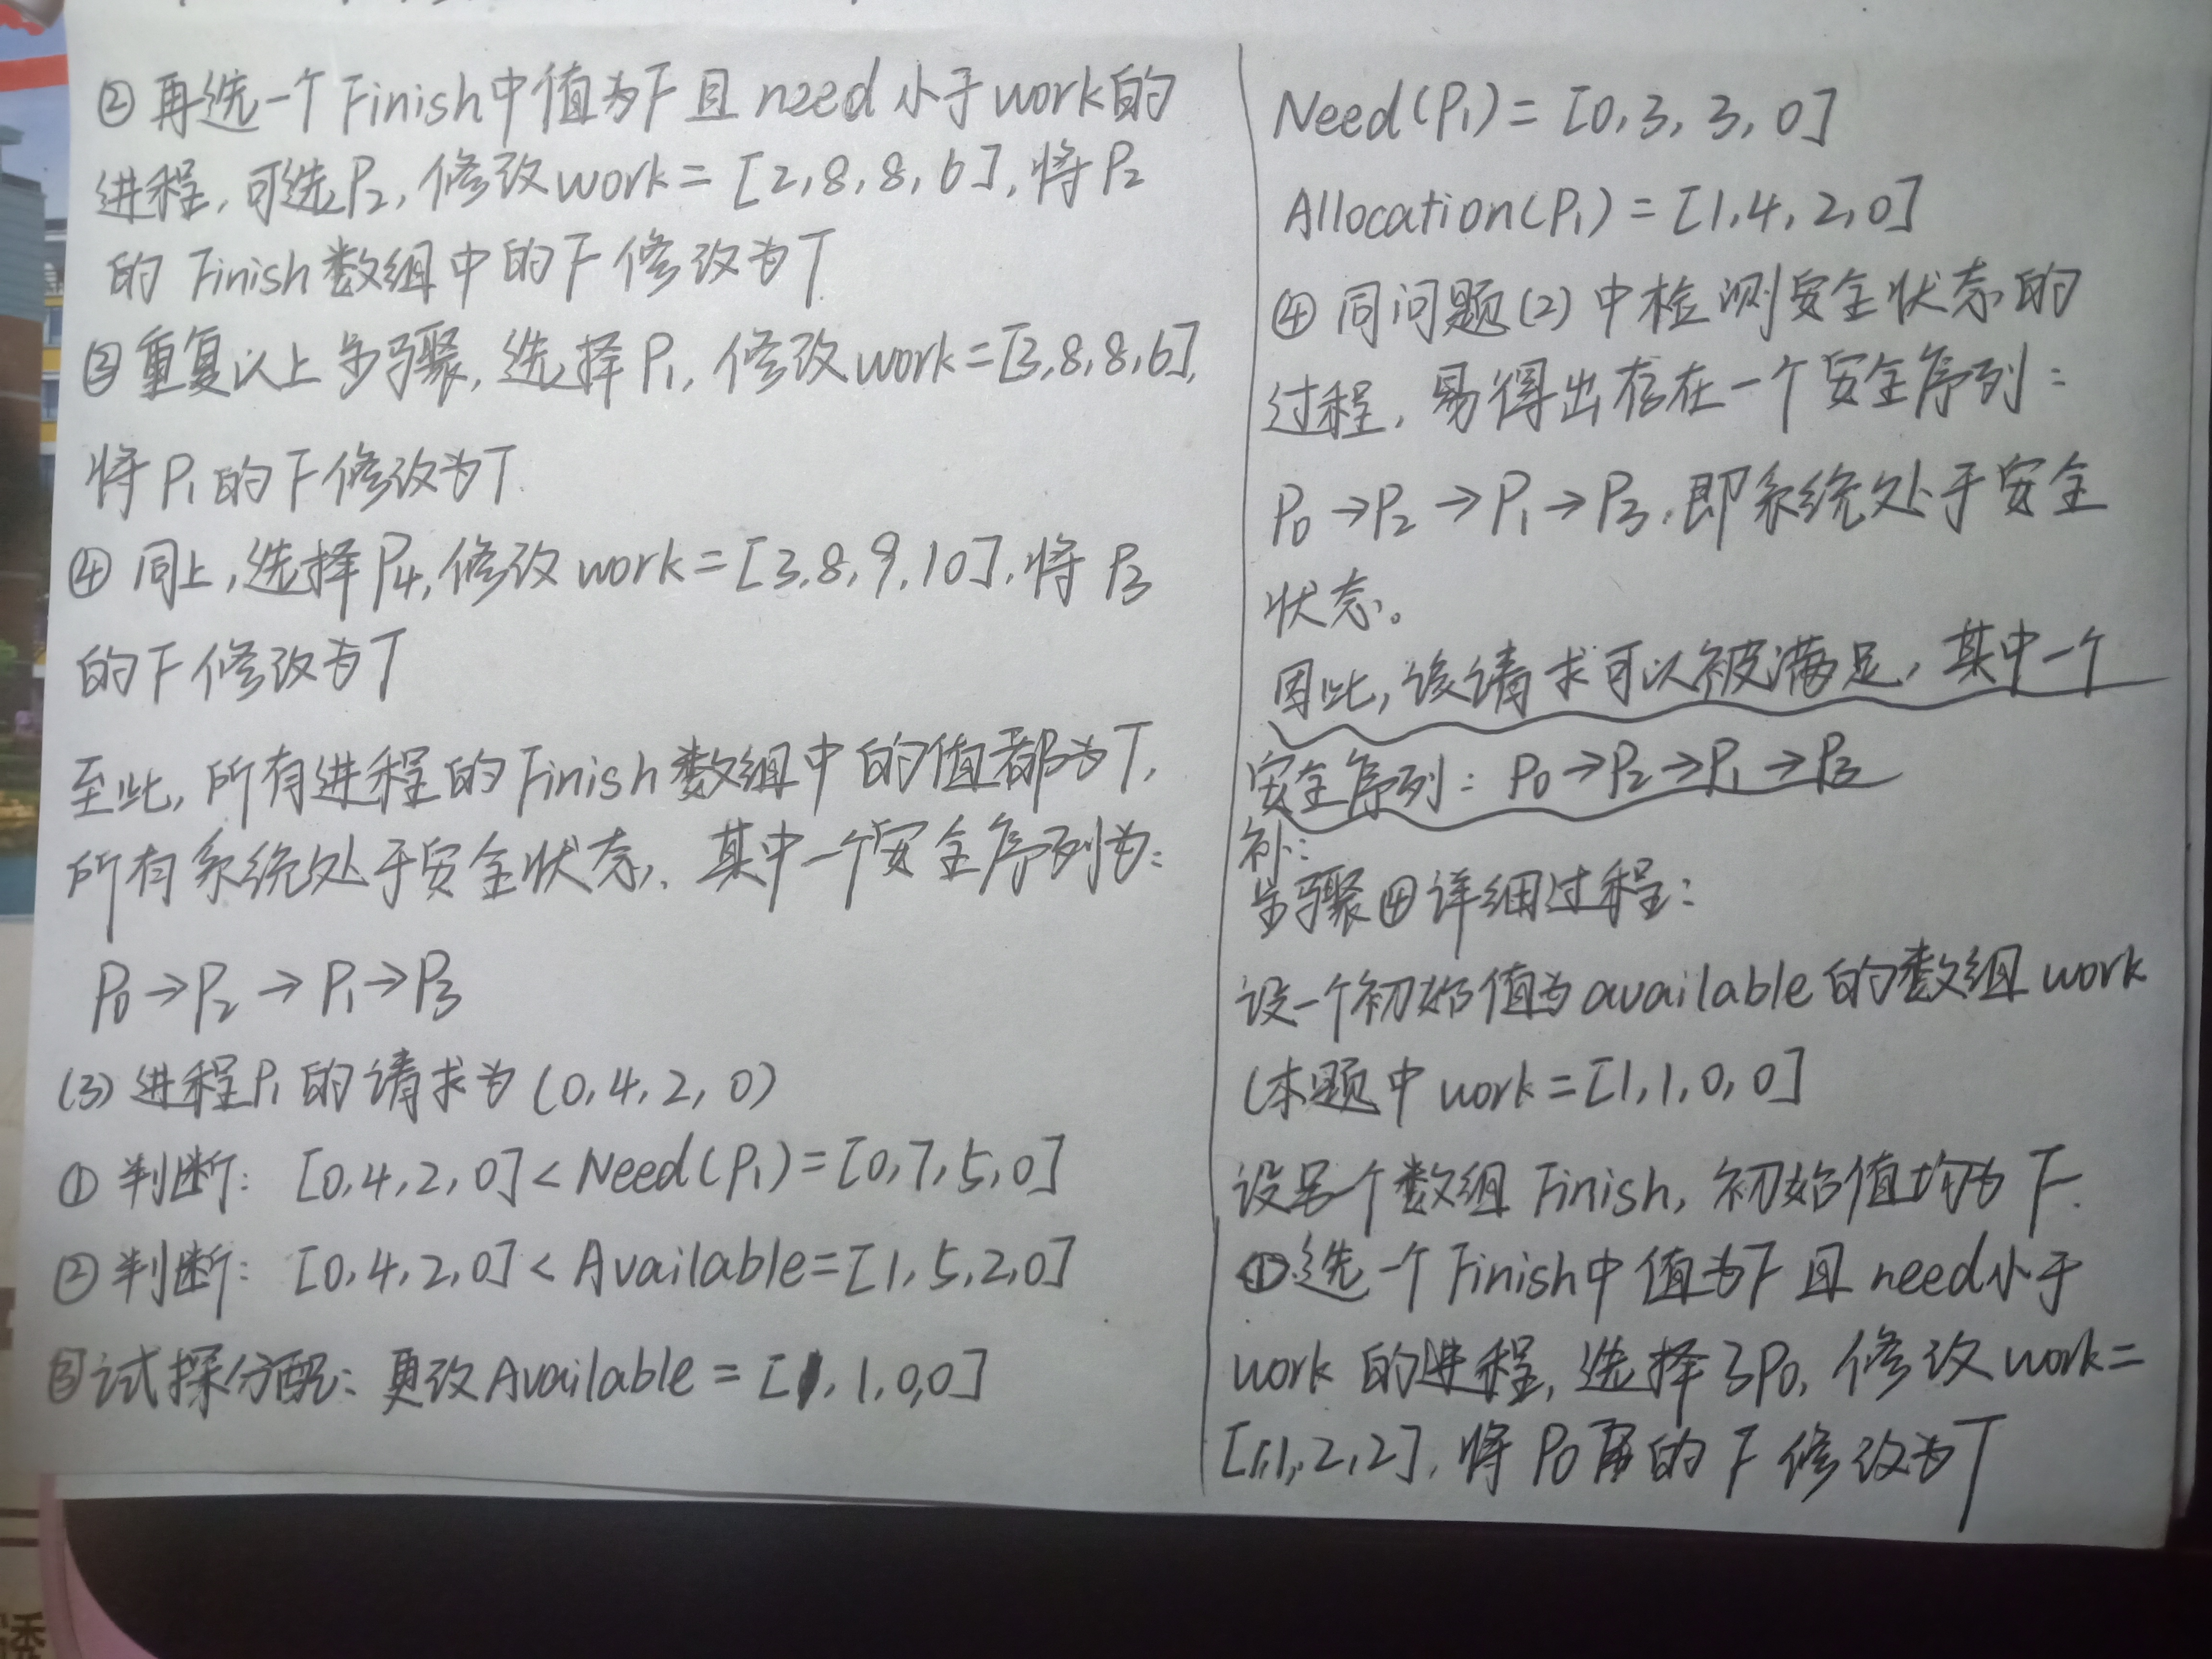 ② 再选一个Finish中值为F且need小于work的
进程,可选P2,修改work=[2,8,8,6],将P2
的Finish数组中的F修改为T.
③重复以上步骤,选择P1,修改work=[3,8,8,6],
将P1的F修改为T.
④ 同上,选择P4,修改work=[3,8,9,10],将P3
的F修改为T
至此,所有进程的Finish数组中的值都为T,
所有系统处于安全状态,其中一个安全序列为:
P0→P2→P1→P3
(3)进程P1的请求为(0,4,2,0)
①判断: [0,4,2,0]<Need(P1)=[0,7,5,0]
②判断: [0,4,2,0]<Available=[1,5,2,0]
③试探分配: 更改Available=[1,1,0,0]
Need(P1)=[0,3,3,0]
Allocation(P1)=[1,4,2,0]
④同问题(2)中检测安全状态的
过程,易得出存在一个安全序列:
P0→P2→P1→P3,即系统处于安全
状态。
因此,该请求可以被满足,其中一个
安全序列:P0→P2→P1→P3
补:
步骤④详细过程:
设一个初始值为available的数组work
(本题中work=[1,1,0,0]
设另一个数组Finish,初始值均为F.
①选一个Finish中值为F且need小于
work的进程,选择了P0,修改work=
[1,1,2,2],将P0的F修改为T